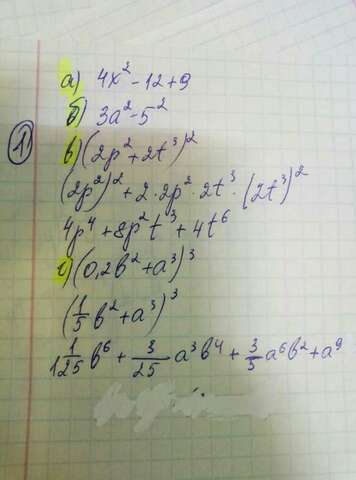 а) 4x² - 12 + 9
б) 3a² - 5²
1) в) (2p² + 2t³)²
(2p²)² + 2 · 2p² · 2t³ · (2t³)²
4p⁴ + 8p²t³ + 4t⁶
г) (0,2b² + a³)³
(1/5 b² + a³)³
1 1/125 b⁶ + 3/25 a³b⁴ + 3/5 a⁶b² + a⁹